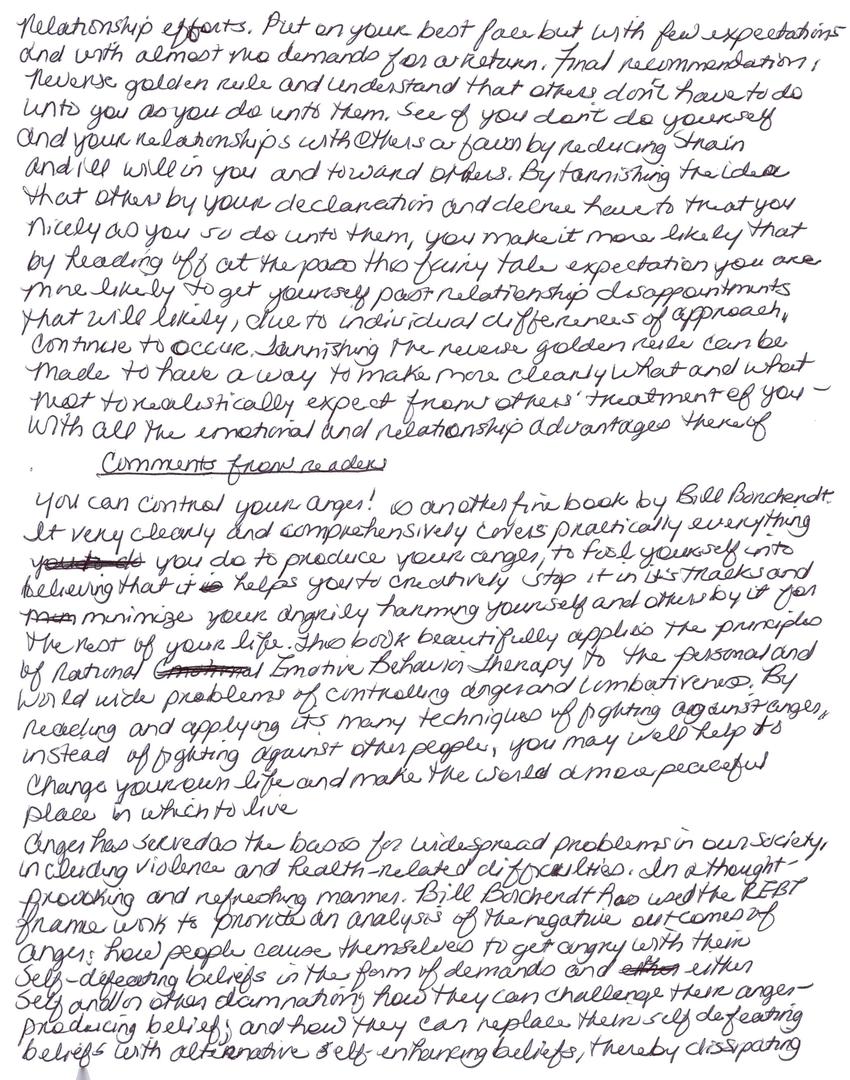 Relationship efforts. Put on your best face but with few expectations
and with almost no demands for a return. Final recommendation:
Reverse golden rule and understand that others don't have to do
unto you as you do unto them. See if you don't do yourself
and your relationships with others a favor by reducing strain
and ill will in you and toward others. By tarnishing the idea
that others by your declaration and decree have to treat you
nicely as you so do unto them, you make it more likely that
by heading off at the pass this fairy tale expectation you are
more likely to get yourself past relationship disappointments
that will likely, due to individual differences of approach,
continue to occur. Tarnishing the reverse golden rule can be
made to have a way to make more clearly what and what
not to realistically expect from others' treatment of you -
with all the emotional and relationship advantages thereof
Comments from readers
You can control your anger! is another fine book by Bill Borchendt.
It very clearly and comprehensively covers practically everything
you to do you do to produce your anger, to fool yourself into
believing that it is helps you to creatively stop it in its tracks and
minimize your angrily harming yourself and others by it for
the rest of your life. This book beautifully applies the principles
of Rational Emotive Behavior Therapy to the personal and
world wide problems of controlling anger and combativeness. By
reading and applying its many techniques of fighting against anger,
instead of fighting against other people, you may well help to
change your own life and make the world a more peaceful
place in which to live
Anger has served as the basis for widespread problems in our society,
including violence and health-related difficulties. In a thought-
provoking and refreshing manner. Bill Borchendt has used the REBT
frame work to provide an analysis of the negative outcomes of
anger; how people cause themselves to get angry with their
self-defeating beliefs in the form of demands and either either
self and/or other damnation; how they can challenge their anger-
producing beliefs; and how they can replace their self defeating
beliefs with alternative self-enhancing beliefs, thereby dissipating